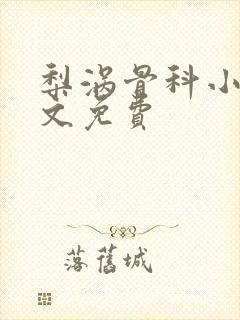 梨涡骨科小
文免費
落舊城